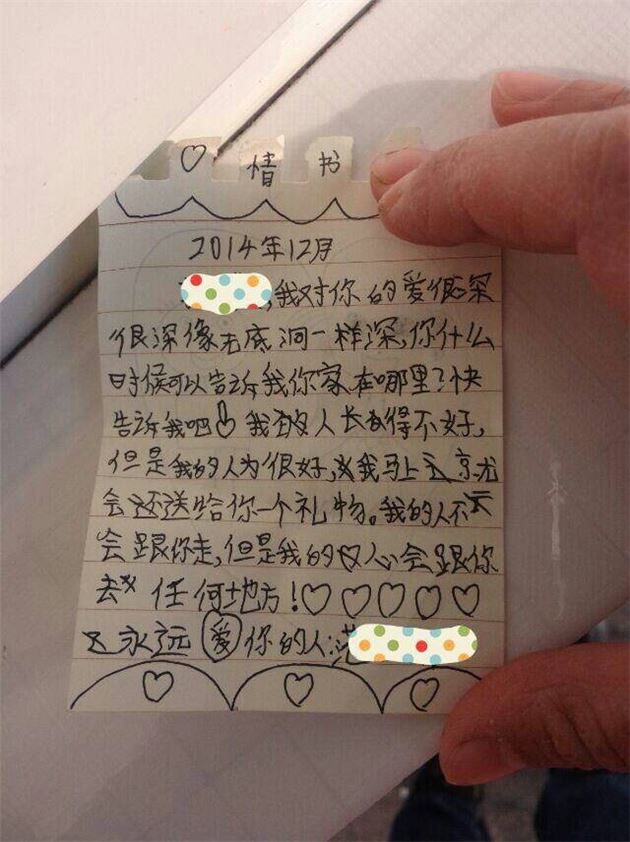 ♡ 情 书
2014年12月
,我对你的爱很深
很深像无底洞一样深,你什么
时候可以告诉我你家在哪里?快
告诉我吧 我 人长 得不好,
但是我的人为很好, 我马上 就
会还送给你一个礼物。我的人不
会跟你走,但是我的 心会跟你
去 任何地方!♡♡♡♡♡
永远爱你的人:范
♡ ♡ ♡